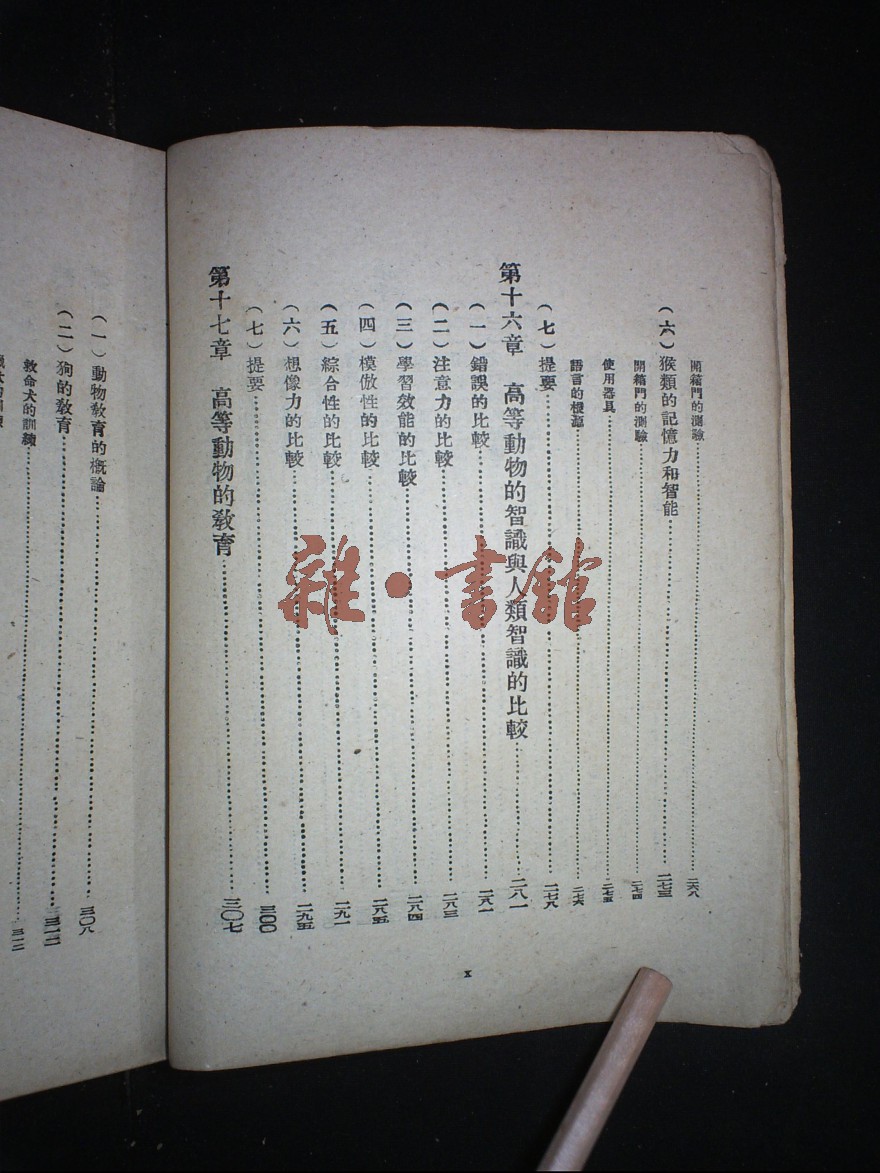 開箱門的測驗………二六八
(六)猴類的記憶力和智能………二七三
開箱門的測驗………二七四
使用器具………二七五
語言的根源………二七六
(七)提要………二七八
第十六章 高等動物的智識與人類智識的比較………二八一
(一)錯誤的比較………二八一
(二)注意力的比較………二八三
(三)學習效能的比較………二八四
(四)模倣性的比較………二八五
(五)綜合性的比較………二九一
(六)想像力的比較………二九五
(七)提要………三〇〇
第十七章 高等動物的教育………三〇七
x
(一)動物教育的概論………三〇八
(二)狗的教育………三一二
救命犬的訓練………三一二
雜·書館